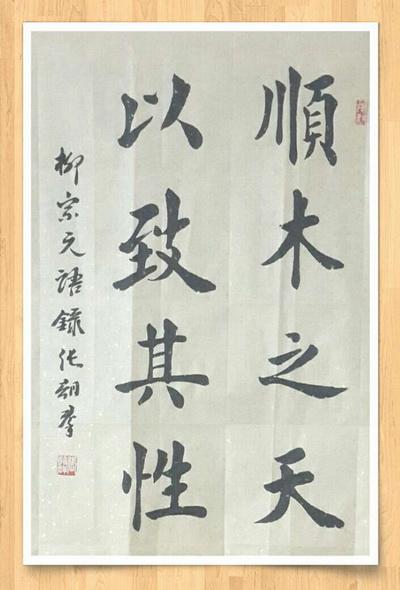 順木之天
以致其性
柳宗元語錄張朝群